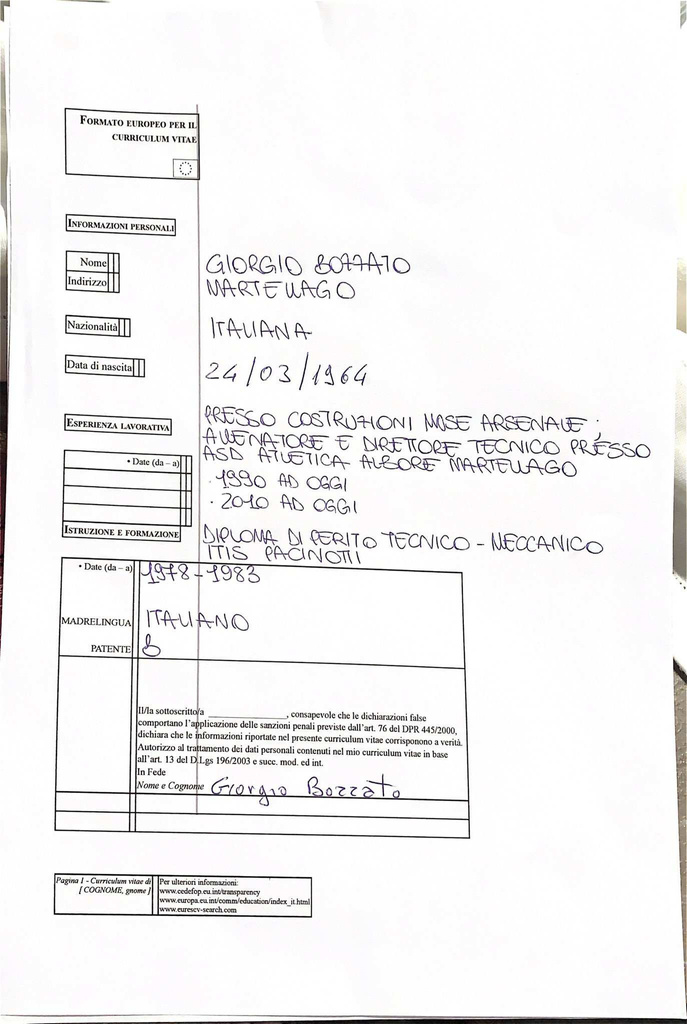 FORMATO EUROPEO PER IL
CURRICULUM VITAE
INFORMAZIONI PERSONALI
Nome GIORGIO BOZZATO
Indirizzo MARTELLAGO
Nazionalità ITALIANA
Data di nascita 24/03/1964
ESPERIENZA LAVORATIVA PRESSO COSTRUZIONI MOSE ARSENALE;
ALLENATORE E DIRETTORE TECNICO PRESSO
• Date (da – a) ASD ATLETICA ALBORE MARTELLAGO
· 1990 AD OGGI
· 2010 AD OGGI
ISTRUZIONE E FORMAZIONE DIPLOMA DI PERITO TECNICO - MECCANICO
ITIS PACINOTTI
• Date (da – a) 1978-1983
MADRELINGUA ITALIANO
PATENTE B
Il/la sottoscritto/a ________________, consapevole che le dichiarazioni false
comportano l'applicazione delle sanzioni penali previste dall'art. 76 del DPR 445/2000,
dichiara che le informazioni riportate nel presente curriculum vitae corrispondono a verità.
Autorizzo al trattamento dei dati personali contenuti nel mio curriculum vitae in base
all'art. 13 del D.Lgs 196/2003 e succ. mod. ed int.
In Fede
Nome e Cognome Giorgio Bozzato
Pagina 1 - Curriculum vitae di
[ COGNOME, gnome ]
Per ulteriori informazioni:
www.cedefop.eu.int/transparency
www.europa.eu.int/comm/education/index_it.html
www.eurescv-search.com